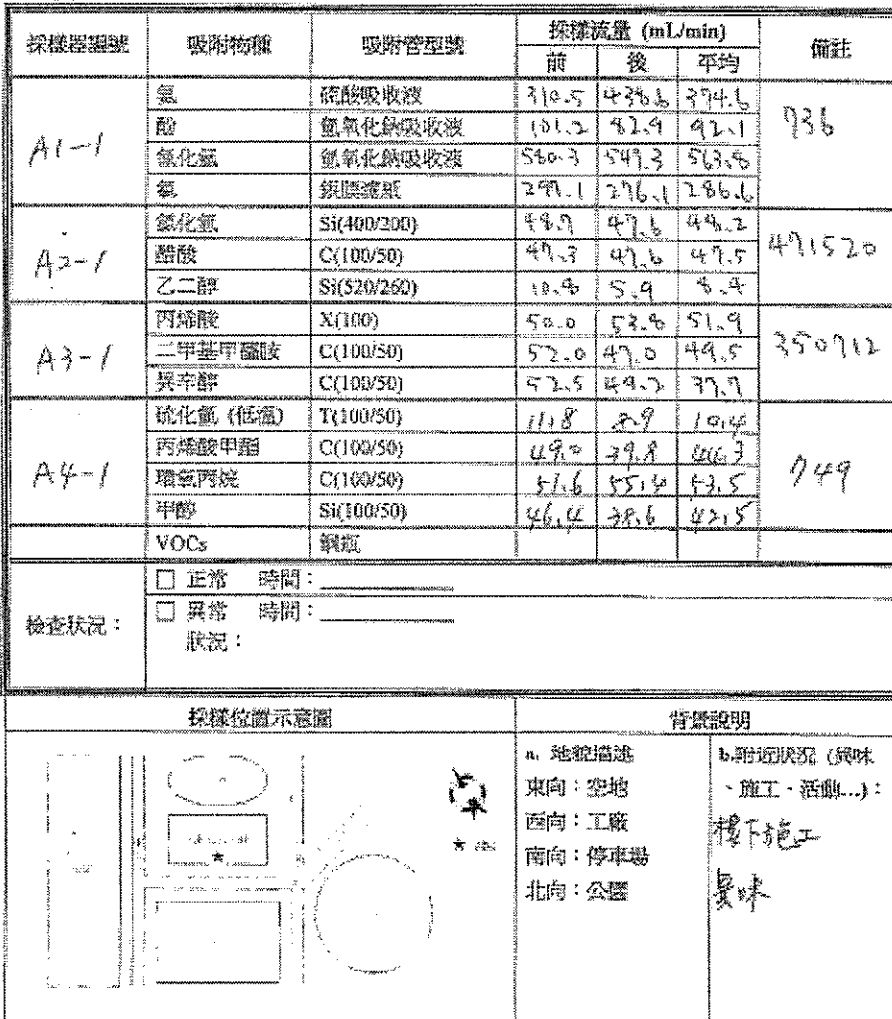 採樣器編號 吸附物種 吸附管型號 採樣流量 (mL/min) 備註
前 後 平均
A1-1 氨 硫酸吸收液 310.5 438.6 374.6 736
酚 氫氧化鈉吸收液 101.2 82.9 92.1
氰化氫 氫氧化鈉吸收液 580.3 547.3 563.8
氯 銀膜濾紙 297.1 276.1 286.6
A2-1 氯化氫 Si(400/200) 48.7 47.6 48.2 471520
醋酸 C(100/50) 47.3 47.6 47.5
乙二醇 Si(520/260) 10.8 5.9 8.4
A3-1 丙烯酸 X(100) 50.0 53.8 51.9 350712
二甲基甲醯胺 C(100/50) 52.0 47.0 49.5
異辛醇 C(100/50) 52.5 49.2 37.7
A4-1 硫化氫 (低溫) T(100/50) 11.8 8.9 10.4 749
丙烯酸甲酯 C(100/50) 49.0 39.8 44.3
環氧丙烷 C(100/50) 51.6 55.4 53.5
甲醇 Si(100/50) 46.4 38.6 42.5
VOCs 鋼瓶
檢查狀況： □ 正常 時間：
□ 異常 時間：
狀況：
採樣位置示意圖 背景說明
a. 地貌描述
東向：空地
西向：工廠
南向：停車場
北向：公園
b.附近狀況 (異味
、施工、活動...)：
樓下施工
異味